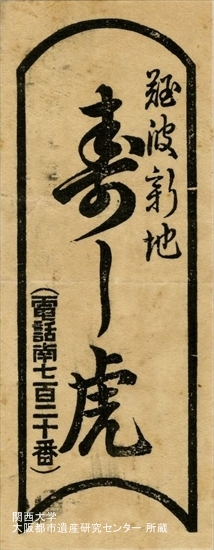 難波新地
寿し虎
(電話南七百二十番)
関西大学
大阪都市遺産研究センター 所蔵